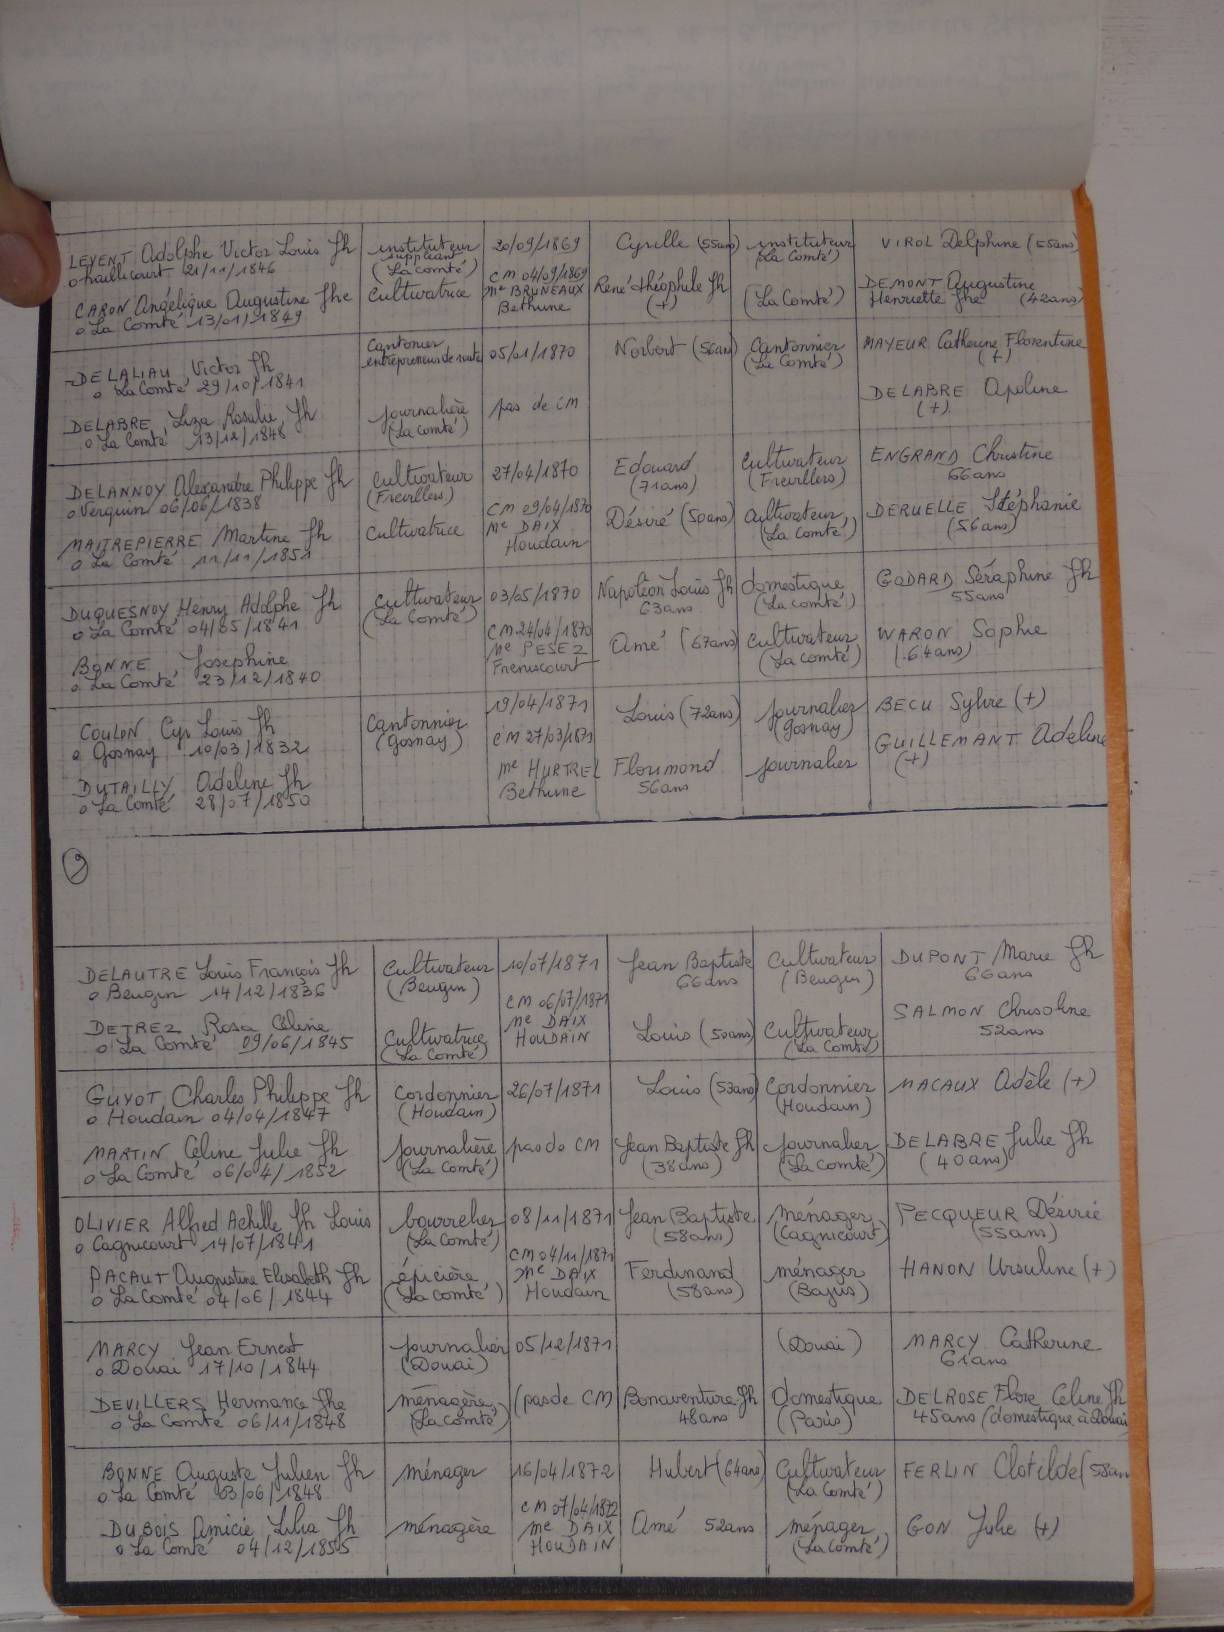 LEVENT Adolphe Victor Louis fh
o haillicourt 21/11/1846
instituteur
suppléant
(La Comté)
20/09/1869
Cyrille (55ans)
instituteur
(La Comté)
VIROL Delphine (55ans)
CARON Angélique Augustine fhe
o La Comté 13/01/1849
Cultivatrice
CM 04/09/1869
Me BRUNEAUX
Bethune
René théophile fh
(+)
(La Comté)
DEMONT Augustine
Henriette fhe (42ans)
DELALIAU Victor fh
o La Comté 29/10/1841
Cantonier
entrepreneur de route
05/01/1870
Norbert (56ans)
Cantonnier
(La Comté)
MAYEUR Catherine Florentine
(+)
DELABRE Liza Rosalie fh
o La Comté 13/12/1848
journalière
(La Comté)
pas de CM
DELABRE Apoline
(+)
DELANNOY Alexandre Philippe fh
o Verquin 06/06/1838
Cultivateur
(Frevillers)
27/04/1870
Edouard
(71ans)
Cultivateur
(Frevillers)
ENGRAND Christine
66ans
MAITREPIERRE Martine fh
o La Comté 11/11/1851
Cultivatrice
CM 09/04/1870
Me DAIX
Houdain
Désiré (50ans)
Cultivateur
(La Comté)
DERUELLE Stéphanie
(56ans)
DUQUESNOY Henry Adolphe fh
o La Comté 04/05/1841
Cultivateur
(La Comté)
03/05/1870
Napoléon Louis fh
63ans
domestique
(La Comté)
GODARD Séraphine fh
55ans
BONNE Josephine
o La Comté 23/12/1840
CM 24/04/1870
Me PESEZ
Amé (67ans)
Cultivateur
(La Comté)
WARON Sophie
(64ans)
COULON Cyr Louis fh
o Gosnay 10/03/1832
Cantonnier
(Gosnay)
19/04/1871
Louis (72ans)
journalier
(Gosnay)
BECU Sylvie (+)
DUTAILLY Adeline fh
o La Comté 28/07/1850
CM 27/03/1871
Me HURTREL
Bethune
Florimond
56ans
journalier
GUILLEMANT Adeline
(+)
9
DELAUTRE Louis François fh
o Beugin 14/12/1836
Cultivateur
(Beugin)
10/07/1871
Jean Baptiste
66ans
Cultivateur
(Beugin)
DUPONT Marie fh
66ans
DETREZ Rosa Céline
o La Comté 09/06/1845
Cultivatrice
(La Comté)
CM 06/07/1871
Me DAIX
HOUDAIN
Louis (50ans)
Cultivateur
(La Comté)
SALMON
52ans
GUYOT Charles Philippe fh
o Houdain 04/04/1847
Cordonnier
(Houdain)
26/07/1871
Louis (53ans)
Cordonnier
(Houdain)
MACAUX Adèle (+)
MARTIN Céline Julie fh
o La Comté 06/04/1852
journalière
(La Comté)
pas de CM
Jean Baptiste fh
(38ans)
journalier
(La Comté)
DELABRE Julie fh
(40ans)
OLIVIER Alfred Achille fh Louis
o Cagnicourt 14/07/1841
bourrelier
(La Comté)
08/11/1871
Jean Baptiste
(58ans)
ménager
(Cagnicourt)
PECQUEUR Désirie
(55ans)
PACAUT Augustine Elisabeth fh
o La Comté 04/06/1844
épicière
(La Comté)
CM 04/11/1871
Me DAIX
Houdain
Ferdinand
(58ans)
ménager
(Bajus)
HANON Ursuline (+)
MARCY Jean Ernest
o Douai 17/10/1844
journalier
(Douai)
05/12/1871
(Douai)
MARCY Catherine
61ans
DEVILLERS Hermance fhe
o La Comté 06/11/1848
ménagère
(La Comté)
(pas de CM
Bonaventure fh
48ans
domestique
(Paris)
DELROSE Flore Céline fh
45ans (domestique à Douai)
BONNE Auguste Julien fh
o La Comté 03/06/1848
ménager
16/04/1872
Hubert (64ans)
Cultivateur
(La Comté)
FERLIN Clotilde (58an
DUBOIS Amicie Lilia fh
o La Comté 04/12/1855
ménagère
CM 07/04/1872
Me DAIX
HOUDAIN
Amé 52ans
ménager
(La Comté)
GON Julie (+)